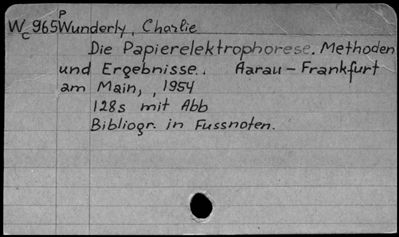 Wc965P Wunderly, Charlie
Die Papierelektrophorese. Methoden
und Ergebnisse. Aarau - Frankfurt
am Main, , 1954
128s mit Abb
Bibliogr. in Fussnoten.